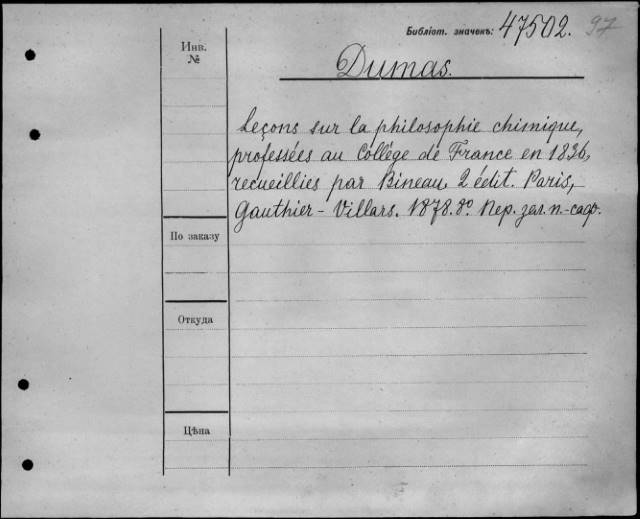 Библіот. значекъ: 47502. 97
Инв.
№
Dumas.
Leçons sur la philosophie chimique,
professées au Collège de France en 1836,
recueillies par Bineau. 2 édit. Paris,
Gauthier-Villars. 1878. 8º. Пер. зел. п.-саф.
По заказу
Откуда
Цѣна